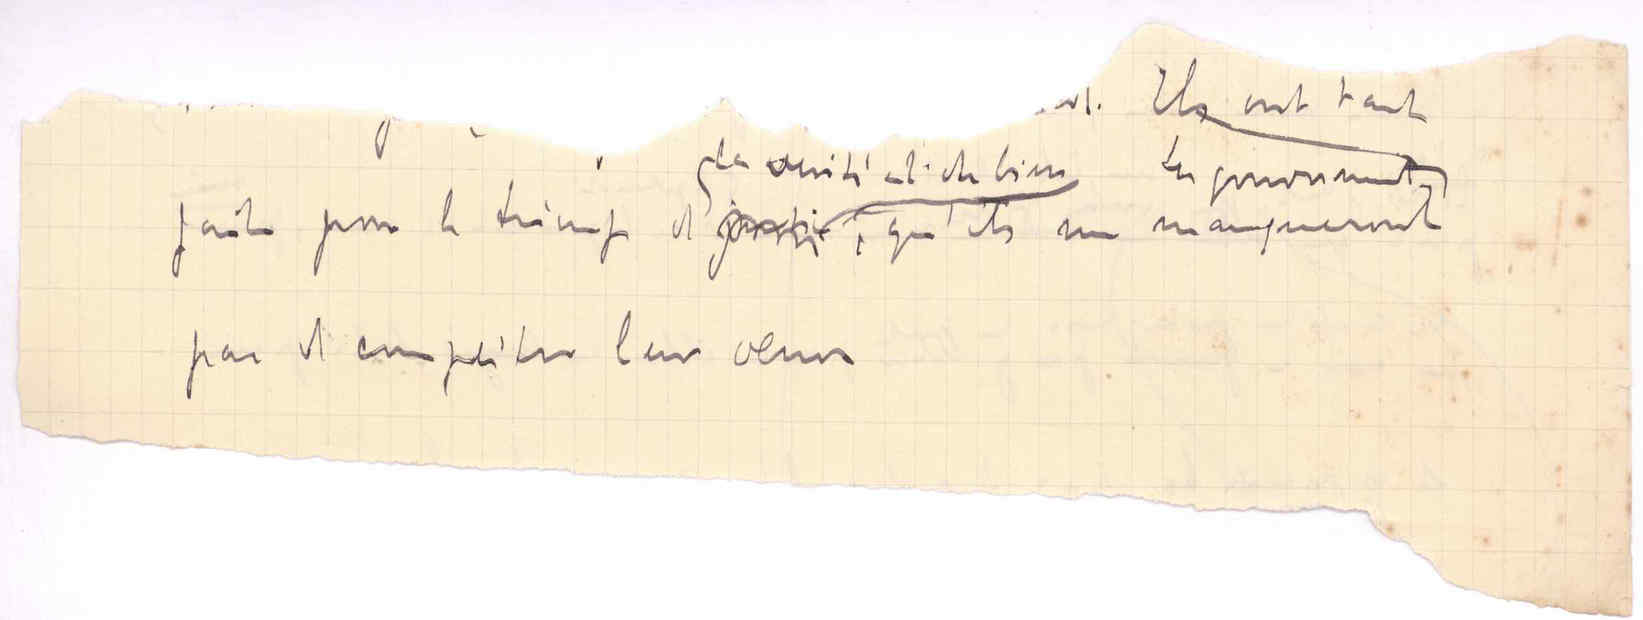 Ils ont tant
la vérité et du bien les gouvernements
fait pour le triomphe de justice, qu'ils ne manqueront
pas de compléter leur œuvre